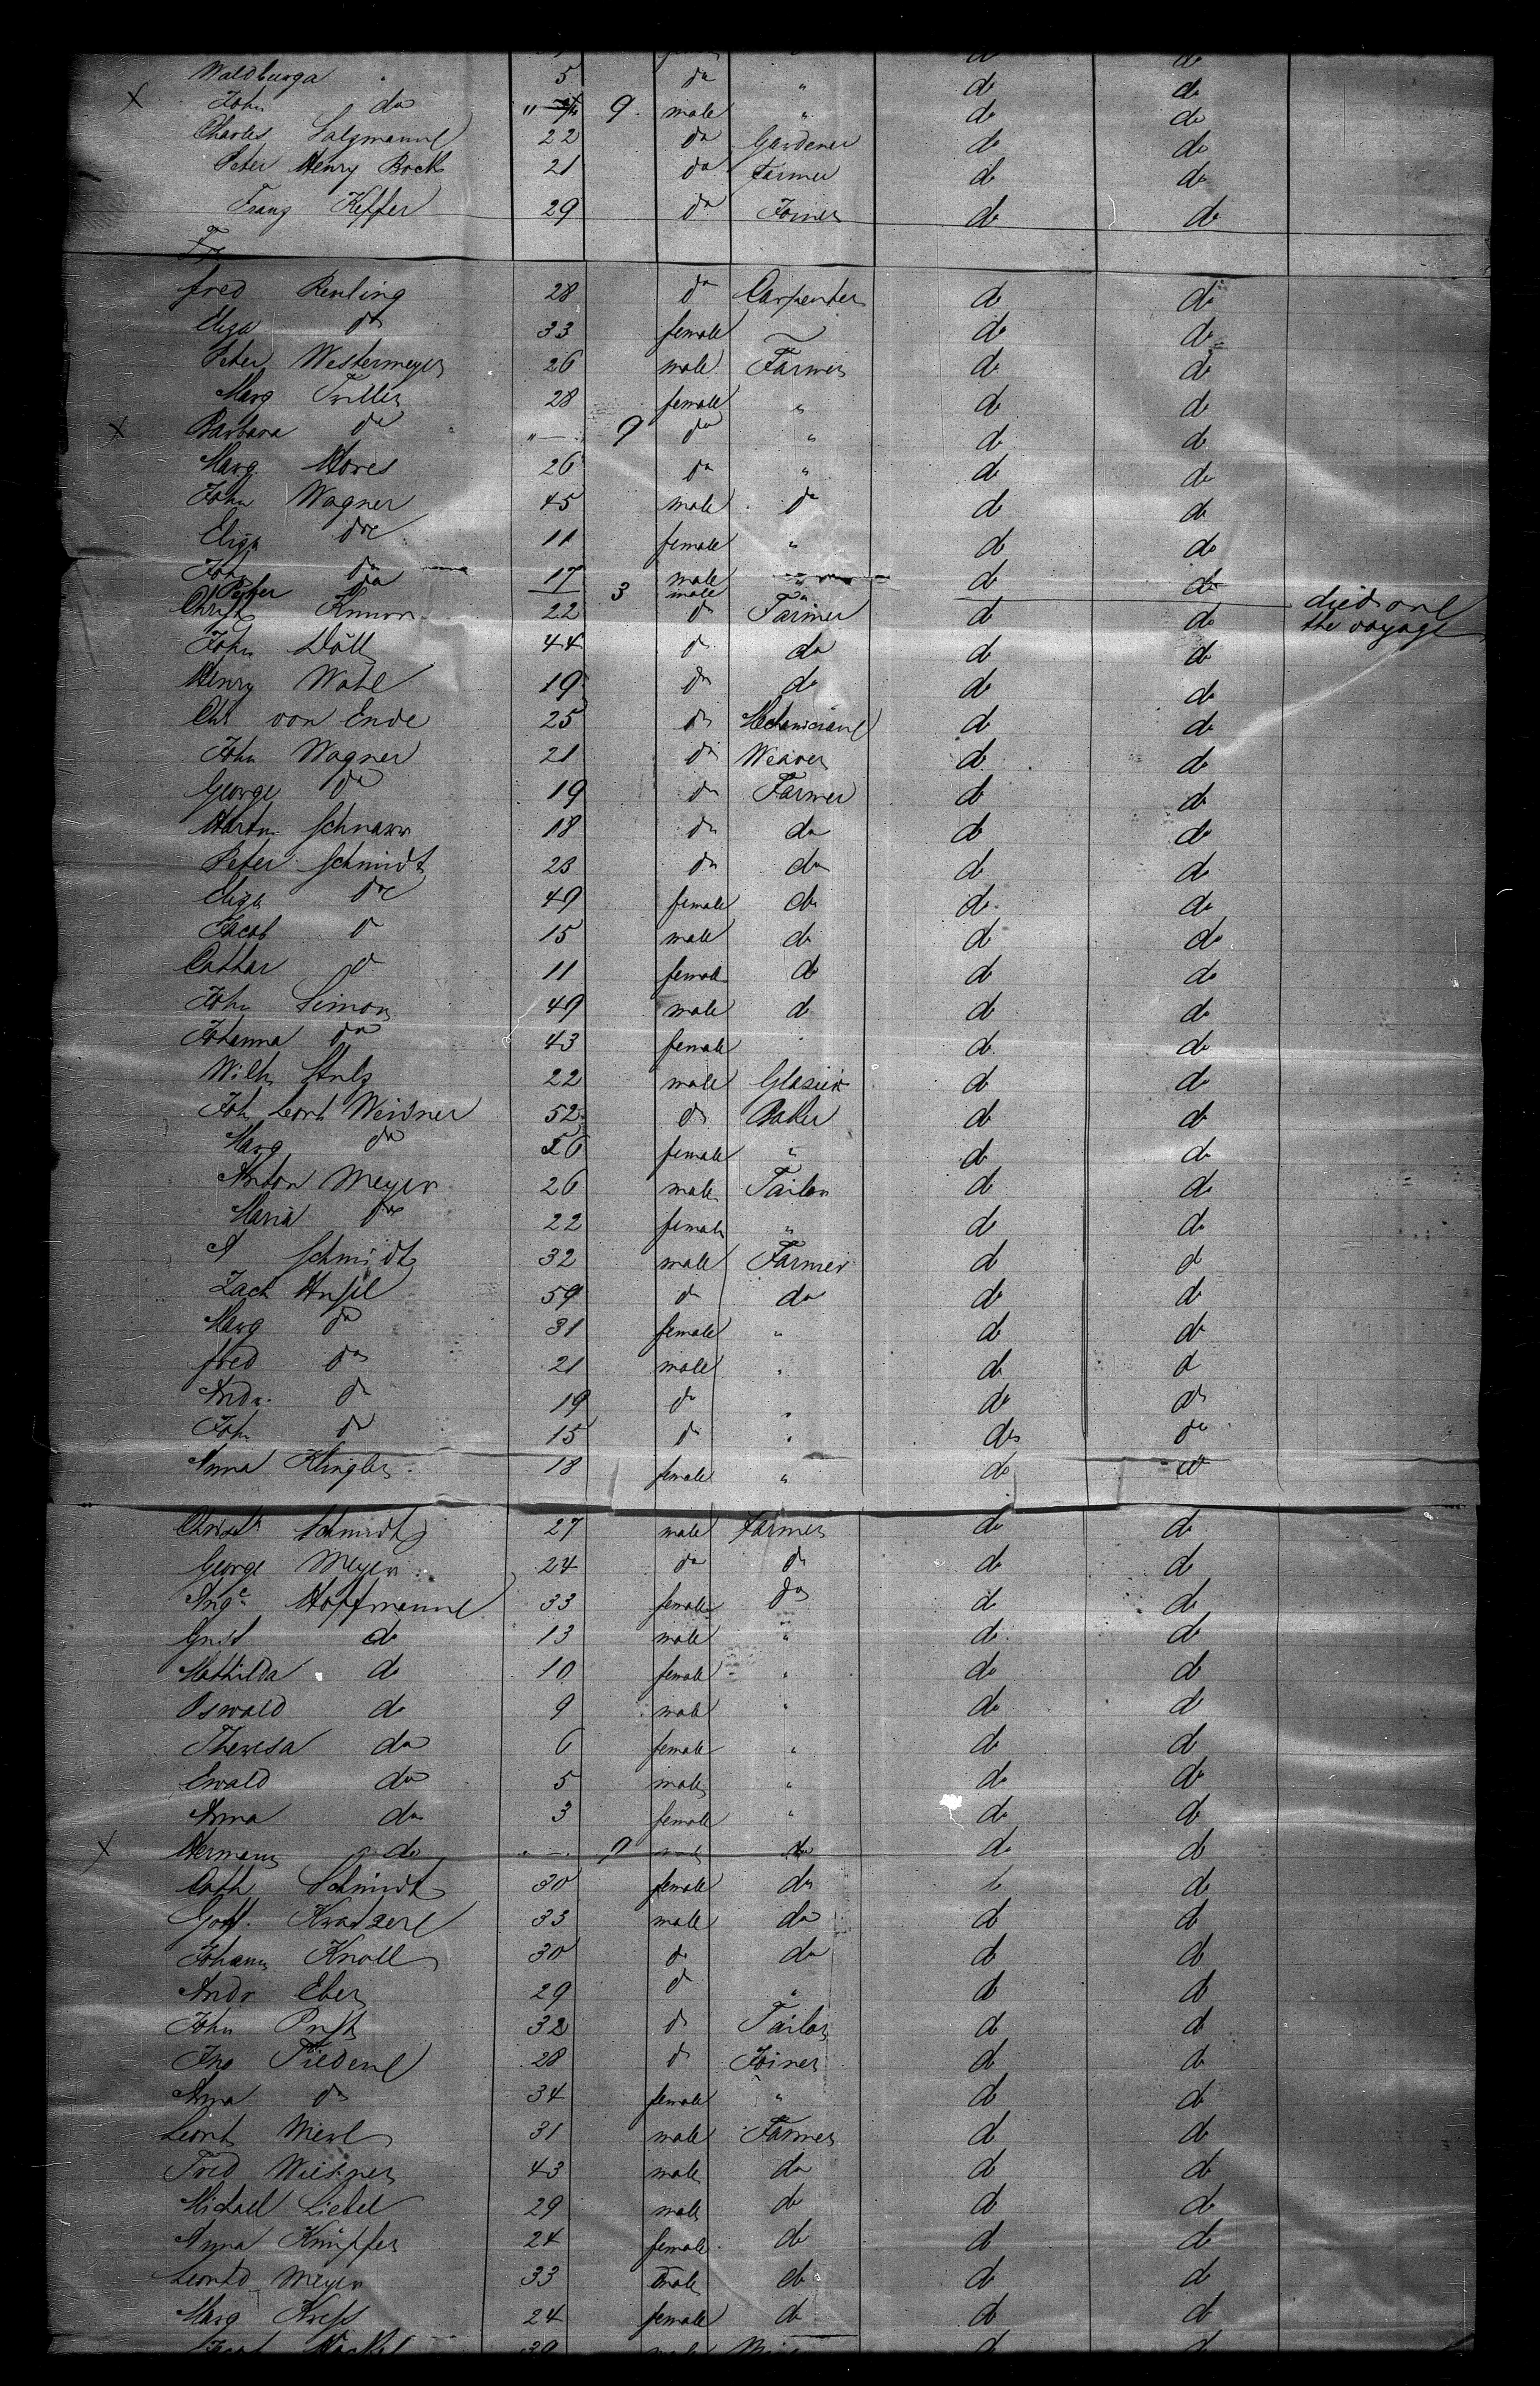 Waldburga " 5 do " do do
X John do " 9 male " do do
Charles Salzmann 22 do Gardener do do
Peter Henry Bock 21 do Farmer do do
Franz Keffer 29 do Joiner do do
Fr
Fred Renling 28 do Carpenter do do
Eliza do 33 female do do
Peter Westermeyer 26 male Farmer do do
Marg Triller 28 female " do do
X Barbara do " 9 do " do do
Marg. Mores 26 do " do do
John Wagner 45 male do do do
Eliza do 11 female " do do
John do 17 male " do do
Peter do 3 male " died on
Christ 22 do Farmer do do the voyage
John Döll 44 do do do do
Henry Wahl 19 do do do do
Chr von Ende 25 do Mechanician do do
John Wagner 21 do Weaver do do
George do 19 do Farmer do do
Martin Schnarr 18 do do do do
Peter Schmidt 23 do do do do
Eliza do 49 female do do do
Jacob do 15 male do do do
Cathar do 11 female do do do
John Simon 49 male do do do
Johanna do 43 female do do
Wilh Stulz 22 male Glasier do do
Joh Leonh Weidner 52 do Baker do do
Marg do 56 female " do do
Anton Meyer 26 male Tailor do do
Maria do 22 female " do do
A Schmidt 32 male Farmer do do
Zach 59 do do do do
Marg do 31 female " do do
Fred do 21 male " do do
Andr. do 19 do " do do
Joh do 15 do " do do
Anna Klingler 18 female " do do
Christ Schmidt 27 male Farmer do do
George Meyer 24 do do do do
Aug. Hoffmann 33 female do do do
Gust do 13 male " do do
Mathilda do 10 female " do do
Oswald do 9 male " do do
Theresa do 6 female " do do
Ewald do 5 male " do do
Anna do 3 female " do do
X Hermann do 9 male do do do
Cath Schmidt 30 female do do do
Gott. 33 male do do do
Johann Knoll 30 do do do do
Andr Eber 29 do " do do
John 32 do Tailor do do
Jno Tiedenl 28 do Joiner do do
Anna do 34 female " do do
Leonh Merl 31 male Farmer do do
Fred 43 male do do do
Michael Liebel 29 male do do do
Anna Knüpfer 24 female do do do
Leonhd Meyer 33 male do do do
Marg Kress 24 female do do do
39